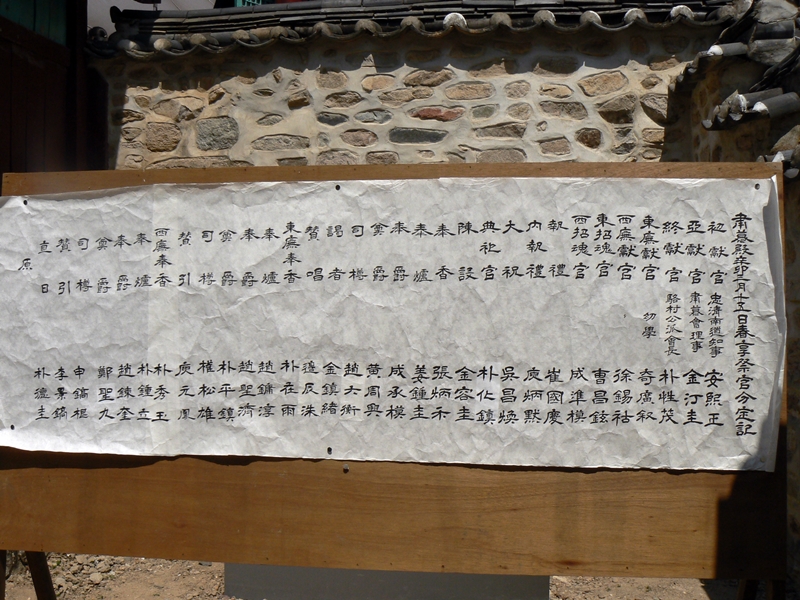 肅慕殿辛卯三月十五日春享祭官分定記
初獻官 忠淸南道知事 安熙正
亞獻官 肅慕會理事 金汀圭
終獻官 駱村公派會長 朴性茂
東廡獻官 幼學 奇廣叙
西廡獻官 徐錫祜
東招魂官 曹昌鉉
西招魂官 成準模
報禮 崔國慶
內報禮 庾炳默
大祝 吳昌煥
典祀官 朴化鎭
陳設 金容圭
奉香 張炳禾
奉爐 姜鍾圭
奉爵 成承模
奠爵 黄周興
司樽 趙大衡
謁者 金鎭緖
贊唱 辰洙
東廡奉香 朴在雨
奉爐 趙鏞淳
奉爵 趙聖濟
奠爵 朴平鎭
司樽 權松雄
贊引 庾元鳳
西廡奉香 朴秀玉
奉爐 朴鍾立
奉爵 趙鍊奎
奠爵 鄭聖九
司樽 申鎬
贊引 李景鎬
直日 朴德圭
原